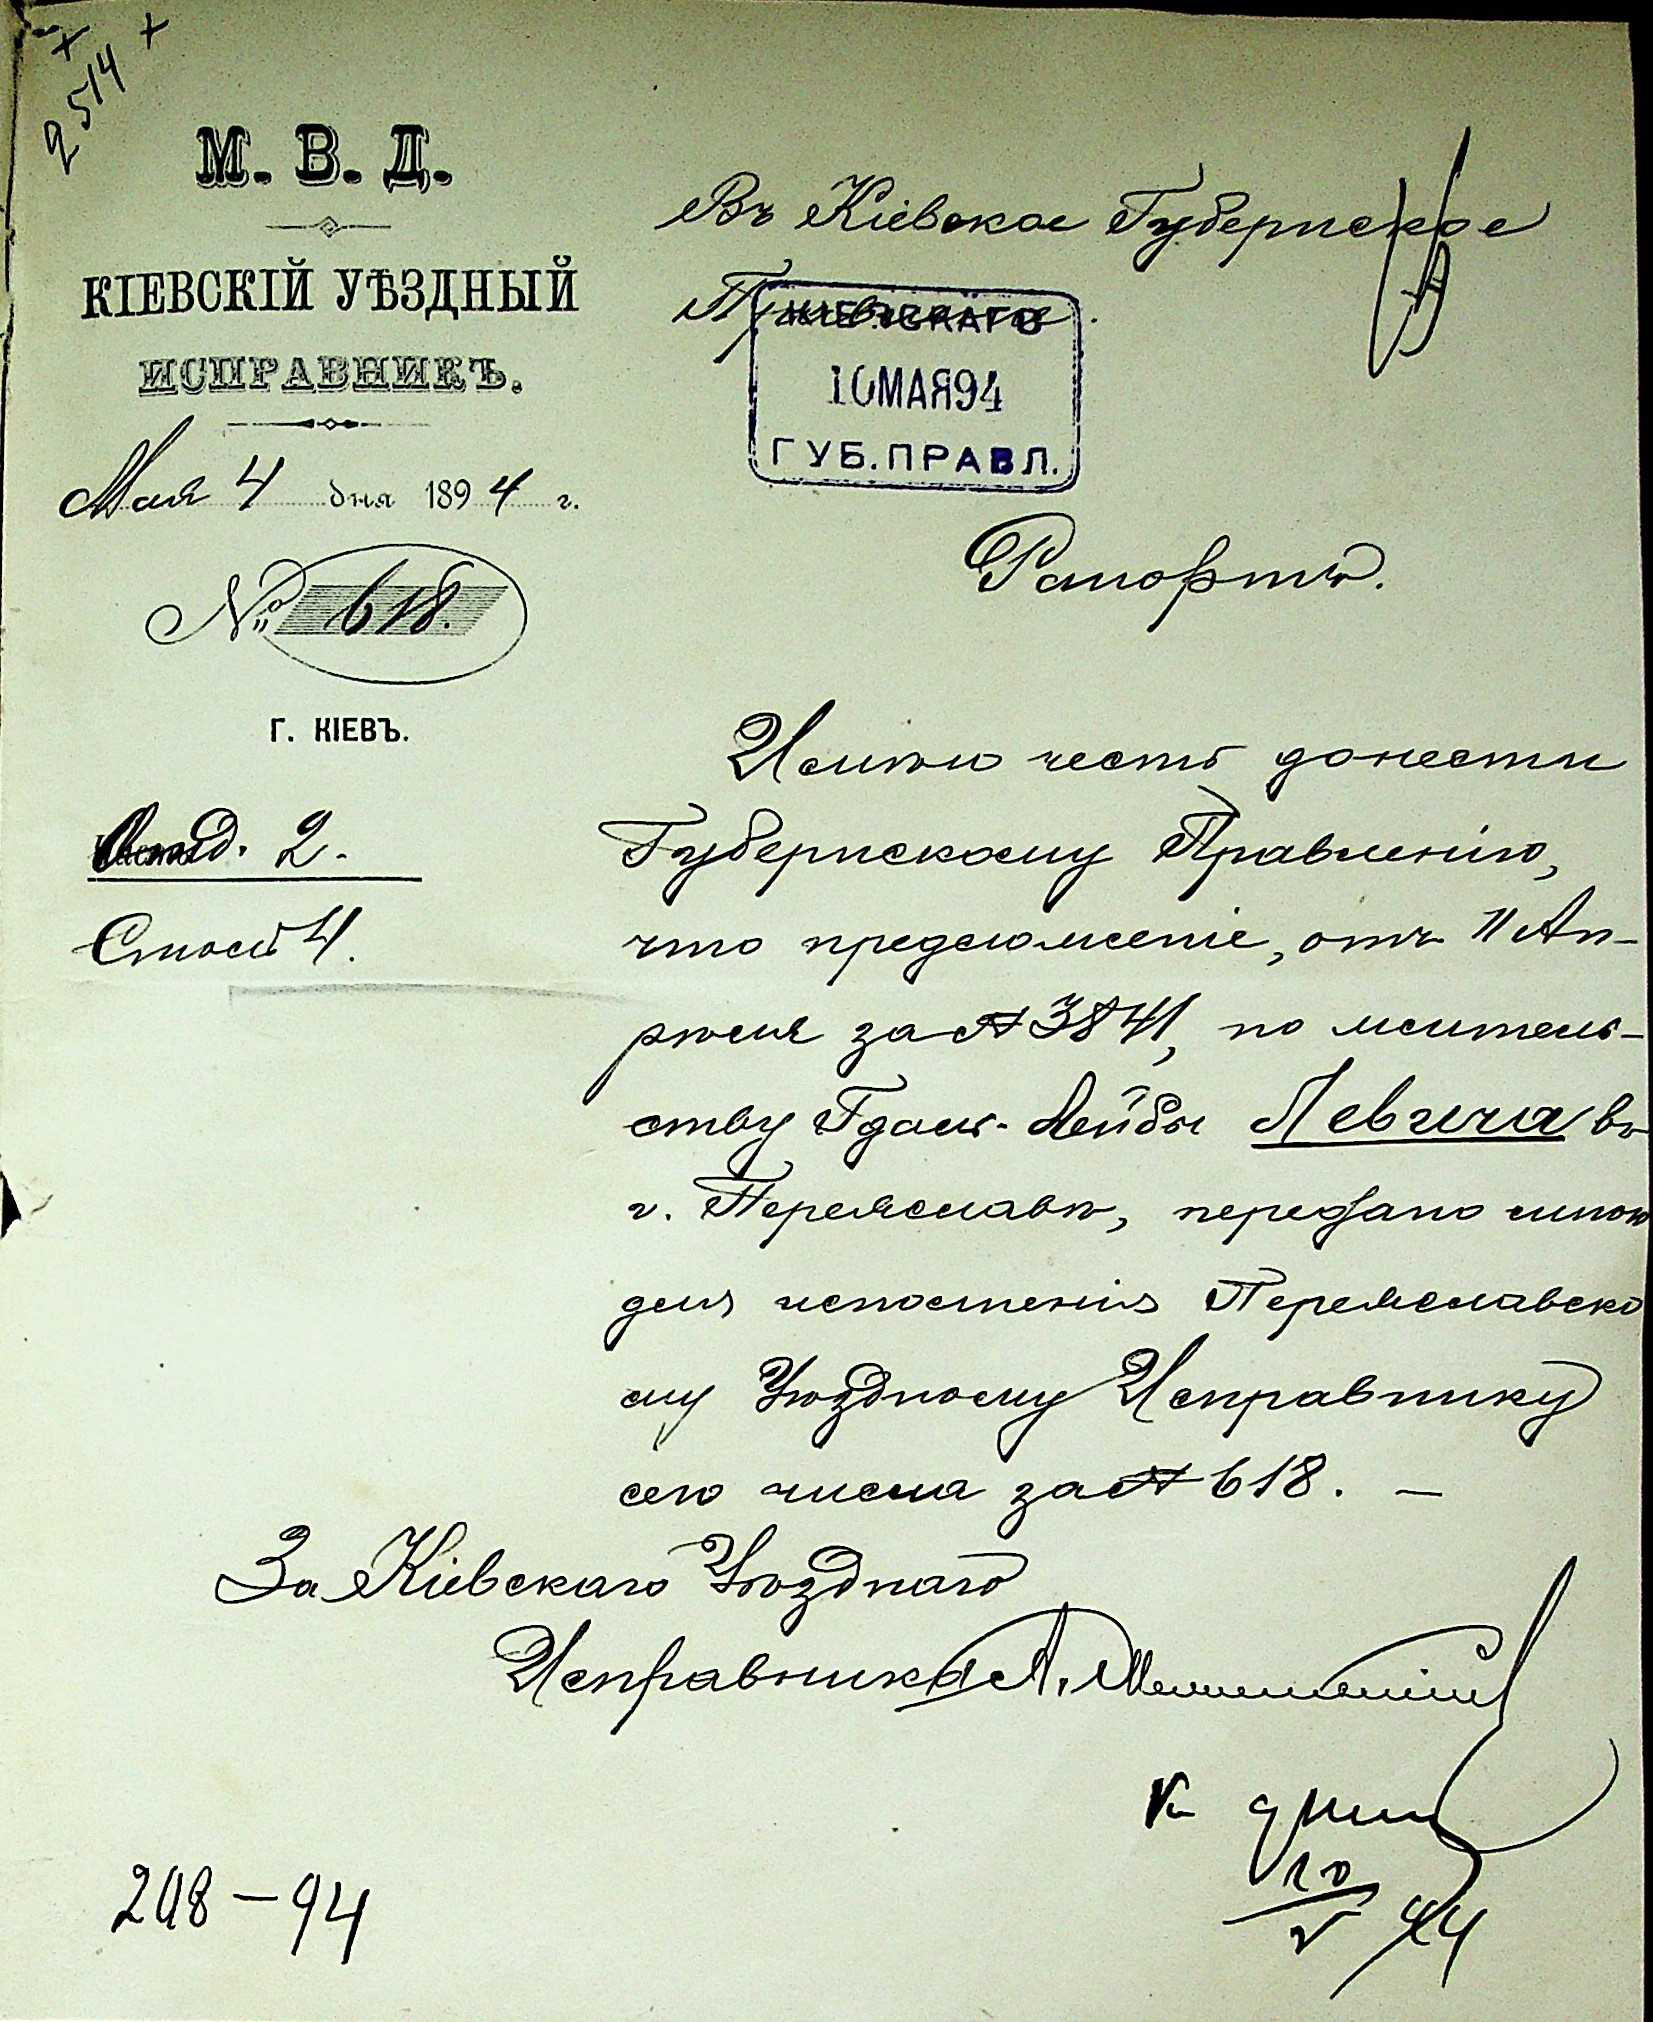 2514
М. В. Д.
КІЕВСКІЙ УѢЗДНЫЙ
ИСПРАВНИКЪ.
Мая 4 дня 1894 г.
№ 618.
Г. КІЕВЪ.
Отд. 2.
Столъ 4.
Въ Кіевское Губернское
Правленіе.
КІЕВСКАГО
10 МАЯ 94
ГУБ. ПРАВЛ.
Рапортъ.
Имѣю честь донести
Губернскому Правленію,
что предложеніе, отъ 11 Ап-
рѣля за № 3841, по житель-
ству Гдаль-Лейбы Левича въ
г. Переяславѣ, передано мною
для исполненія Переяславско
му Уѣздному Исправнику
сего числа за № 618. —
За Кіевскаго Уѣзднаго
Исправника А.
К
10
V 94
208 - 94